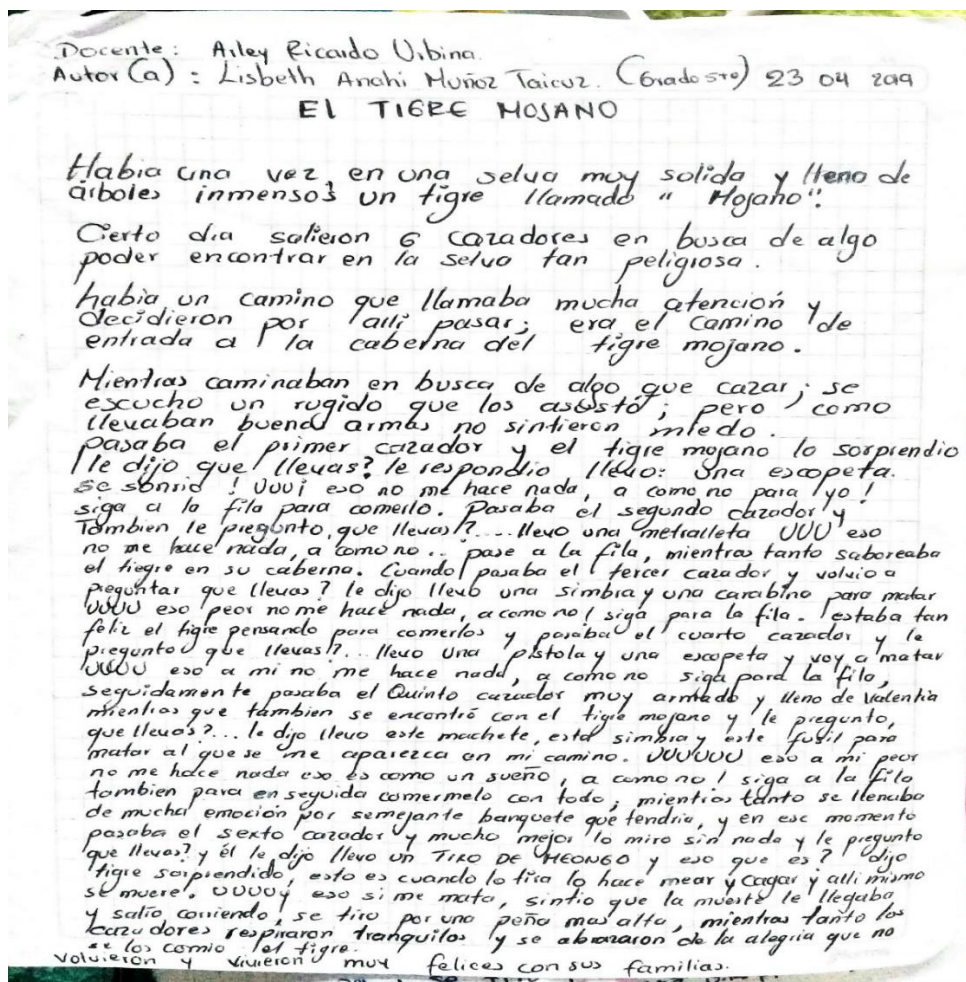 Docente: Arley Ricardo Urbina.
Autor(a): Lisbeth Anahi Muñoz Taicuz. (Grado 5to) 23 04 2019
El TIGRE MOJANO
Habia una vez en una selva muy solida y lleno de
árboles inmensos un tigre llamado "Mojano".
Cierto dia salieron 6 cazadores en busca de algo
poder encontrar en la selva tan peligrosa.
habia un camino que llamaba mucha atención y
decidieron por alli pasar; era el camino de
entrada a la caberna del tigre mojano.
Mientras caminaban en busca de algo que cazar; se
escucho un rugido que los asustó; pero como
llevaban buena armas no sintieron miedo.
pasaba el primer cazador y el tigre mojano lo sorprendio
lle dijo que llevas? le respondio llevo: Una escopeta.
se sonrio ! UUUi eso no me hace nada, a como no para yo!
siga a la fila para comerlo. Pasaba el segundo cazador y
Tambien le pregunto, que llevas?.... llevo una metralleta UUU eso
no me hace nada, a como no.. pase a la fila, mientras tanto saboreaba
el tiegre en su caberna. Cuando pasaba el tercer cazador y volvio a
preguntar que llevas? le dijo llevo una simbra y una carabina para matar
UUUU eso peor no me hace nada, a como no! siga para la fila. estaba tan
feliz el tigre pensando para comerlos y pasaba el cuarto cazador y le
pregunto que llevas?... llevo una pistola y una escopeta y voy a matar
UUUU eso a mi no me hace nada, a como no siga para la fila,
seguidamente pasaba el Quinto cazador muy armado y lleno de Valentia
mientras que tambien se encontró con el tigre mojano y le pregunto,
que llevas?... le dijo llevo este machete, esta simbra y este fusil para
matar al que se me aparezca en mi camino. UUUUUU eso a mi peor
no me hace nada eso es como un sueño, a como no! siga a la fila
tambien para en seguida comermelo con todo; mientras tanto se llenaba
de mucha emoción por semejante banquete que tendria, y en ese momento
pasaba el sexto cazador y mucho mejor lo miro sin nada y le pregunto
que llevas? y él le dijo llevo un TIRO DE HEONGO y eso que es? dijo
tigre sorprendido, esto es cuando lo tira lo hace mear y cagar y alli mismo
se muere. UUUUy eso si me mata, sintio que la muerte le llegaba
y salio corriendo, se tiro por una peña mas alta, mientras tanto los
cazadores respiraron tranquilos y se abrazaron de la alegria que no
se los comio el tigre.
volvieron y vivieron muy felices con sus familias.